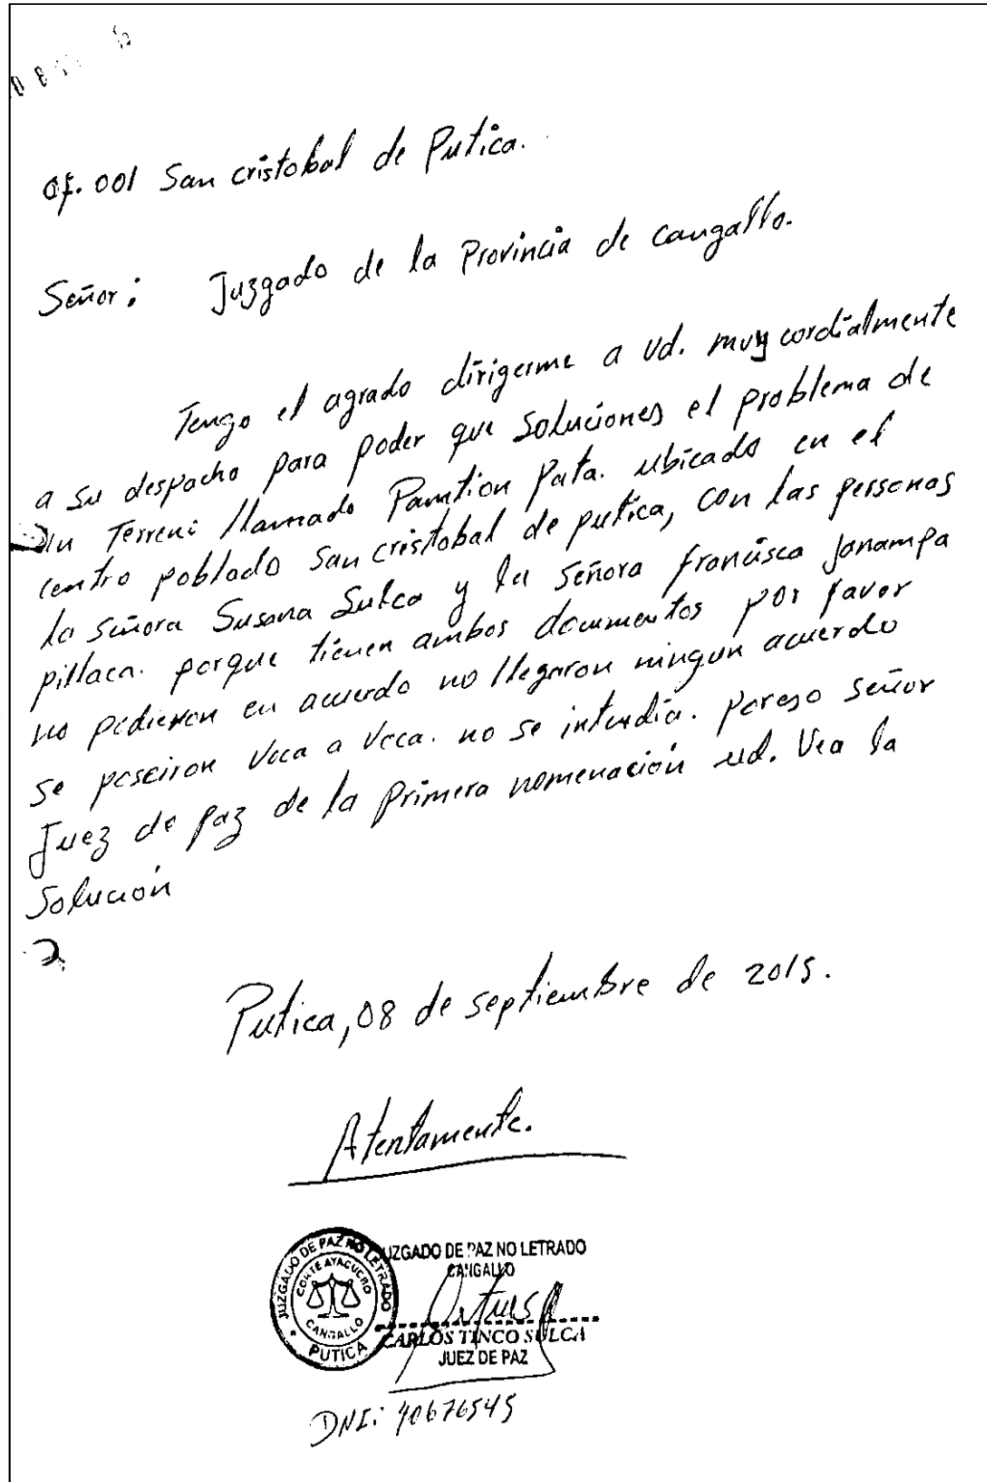 of. 001 San cristobal de Putica.
Señor: Juzgado de la Provincia de cangallo.
Tengo el agrado dirigerme a Ud. muy cordialmente
a su despacho para poder que soluciones el problema de
un Terreno llamado Pamtion Pata. ubicado en el
centro poblado San cristobal de putica, con las personas
la señora Susana Sulca y la señora francisca Janampa
pillaca. porque tienen ambos documentos por favor
no pudieron en acuerdo no llegaron ningun acuerdo
se poseiron Voca a Voca. no se intendia. poreso señor
Juez de paz de la primera nomenación ud. Vea la
Solución
Putica, 08 de septiembre de 2015.
Atentamente.
JUZGADO DE PAZ NO LETRADO
CORTE AYACUCHO
CANGALLO
PUTICA
JUZGADO DE PAZ NO LETRADO
CANGALLO
CARLOS TINCO SULCA
JUEZ DE PAZ
DNI: 40676545